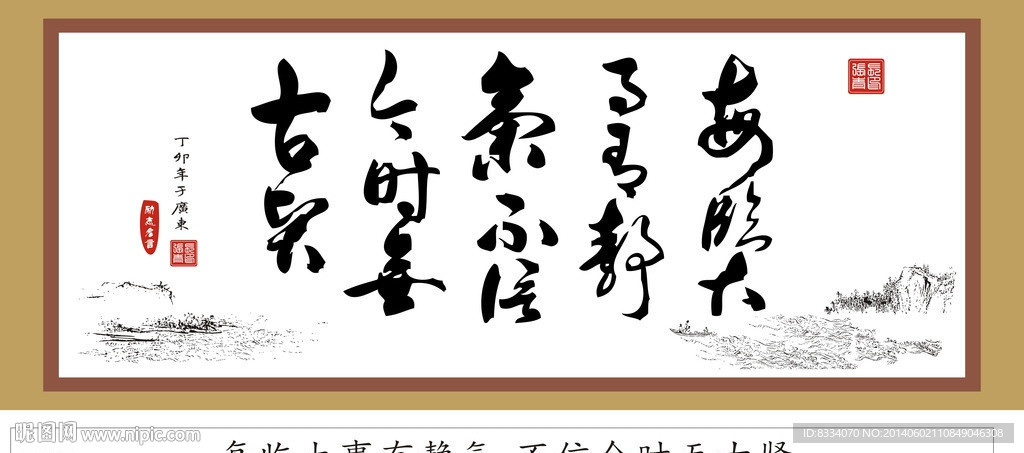 每臨大
事有静
氣不信
今时無
古賢
丁卯年于廣東
励志名言
昵图网 www.nipic.com
ID:8334070 NO:20140602110849046308
每临大事有静气 不信今时无古贤